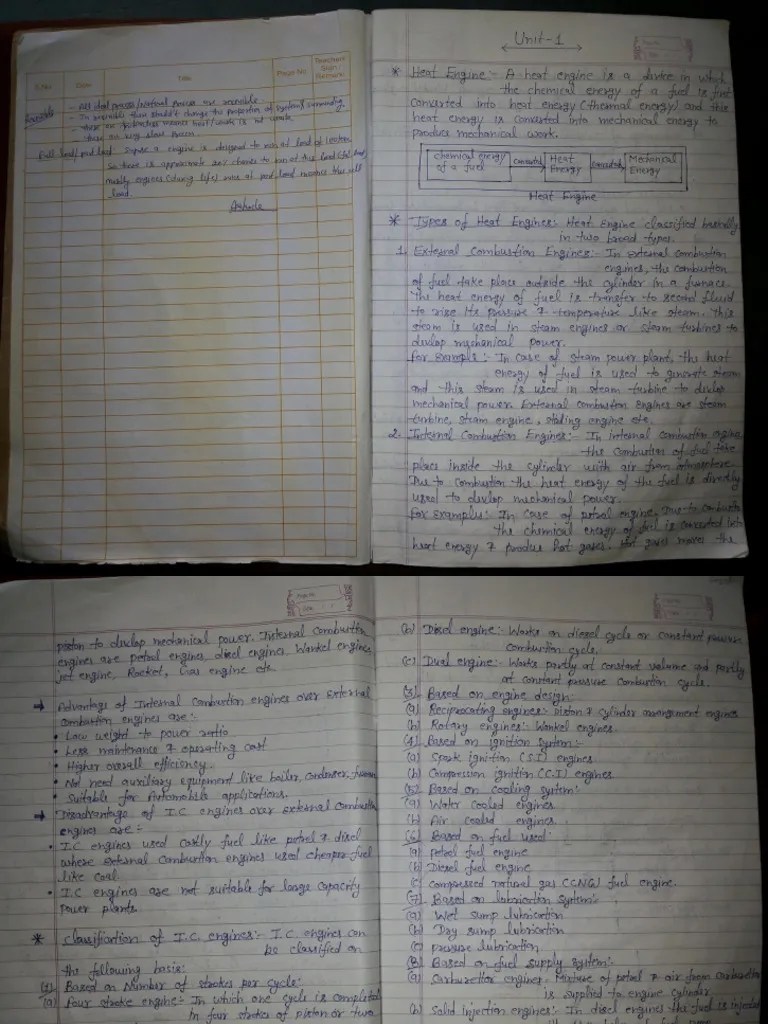 S.No.
Date
Title
Page No.
Teacher's
Sign /
Remark
All ideal process/Natural Process are reversible.
In reversible there shouldn't change the properties of system & surrounding
there are no
heat/work is not
there are very slow Process.
Full load/part load
a engine is designed to run at load of
So there is approximate
to run at this
mostly engines (during life) runs at part load
this full
load.
Unit-1
* Heat Engine:- A heat engine is a device in which
the chemical energy of a fuel is first
converted into heat energy (thermal energy) and this
heat energy is converted into mechanical energy to
produce mechanical work.
Chemical energy
of a fuel
Converted
Heat
Energy
Converted
Mechanical
Energy
Heat Engine
* Types of Heat Engines: Heat Engine classified basically
in two broad types.
1. External Combustion Engines:- In external combustion
engines, the combustion
of fuel take place outside the cylinder in a furnace.
The heat energy of fuel is transfer to second fluid
to rise its pressure & temperature like steam. This
steam is used in steam engines or steam turbines to
devlop mechanical power.
For Example:- In case of steam power plant, the heat
energy of fuel is used to generate steam
and this steam is used in steam turbine to devlop
mechanical power. External combustion engines are steam
turbine, steam engine, starling engine etc.
2. Internal Combustion Engines:- In internal combustion engine
the combustion of fuel take
place inside the cylinder with air from atmosphere.
Due to combustion the heat energy of the fuel is directly
used to devlop mechanical power.
For Examples:- In case of petrol engine. Due to combustion
the chemical energy of fuel is converted into
heat energy & produce hot gases. Hot gases moves the
piston to devlop mechanical power. Internal Combustion
engines are petrol engines, disel engines, Wankel engines,
jet engine, Rocket, Gas engine etc.
→ Advantages of Internal combustion engines over External
combustion engines are:-
• Low weight to power ratio
• Less maintenance & operating cost
• Higher overall efficiency.
• Not need auxiliary equipment like boiler, condenser, furnace
• Suitable for Automobile applications.
→ Disadvantage of I.C engines over external combustion
engines are:-
• I.C engines used costly fuel like petrol & disel
where external Combustion engines used cheaper fuel
like coal
• I.C engines are not suitable for large capacity
Power plants.
* Classification of I.C. engines:- I.C. engines can
be classified on
the following basis:
(1) Based on Number of strokes per cycle:
(a) Four stroke engine:- In which one cycle is completed
in four strokes of piston or two
(b) Disel engine:- Works on diesel cycle or constant pressure
combustion cycle.
(c) Dual engine:- Works partly at constant volume and partly
at constant pressure combustion cycle.
(3) Based on engine design:
(a) Reciprocating engines:- piston & cylinder arrangement engines
(b) Rotary engines:- Wankel engines.
(4) Based on ignition system:-
(a) Spark ignition (S.I) engines
(b) Compression ignition (C.I) engines.
(5) Based on cooling system:-
(a) Water cooled engines
(b) Air cooled engines.
(6) Based on fuel used:
(a) Petrol fuel engine
(b) Diesel fuel engine
(c) compressed natural gas (CNG) fuel engine.
(7) Based on lubrication system:-
(a) Wet sump lubrication
(b) Dry sump lubrication
(c) pressure lubrication
(8) Based on fuel supply system:-
(a) Carburettor engines. Mixture of petrol & air from carburettor
is supplied to engine cylinder.
(b) Solid injection engines: In diesel engines the fuel is injected